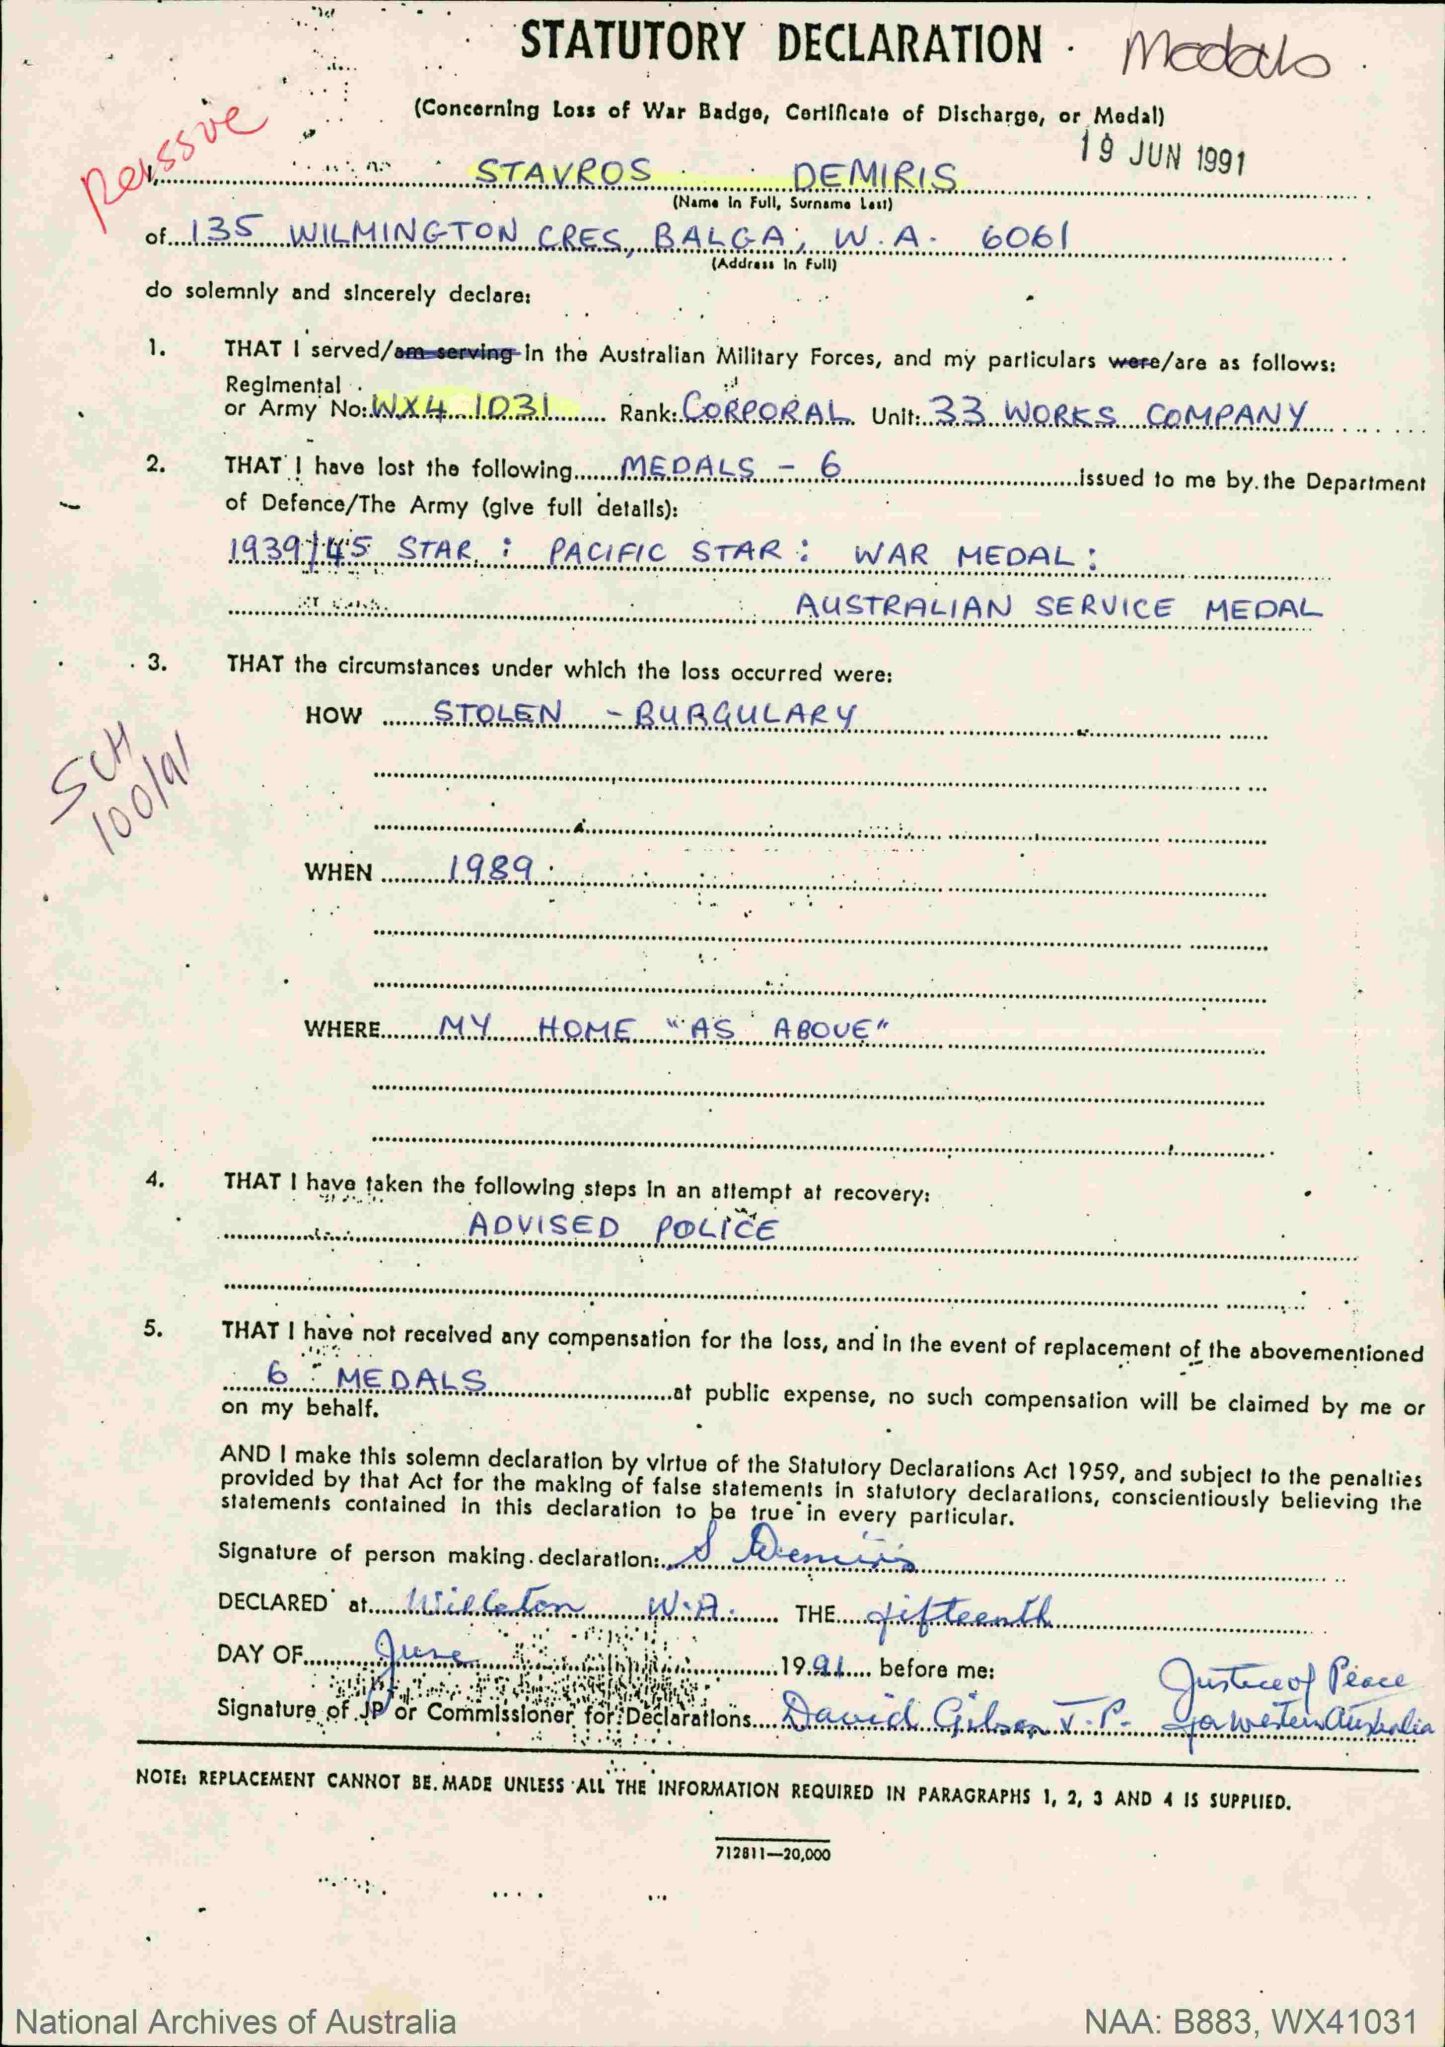 STATUTORY DECLARATION
Medals
(Concerning Loss of War Badge, Certificate of Discharge, or Medal)
19 JUN 1991
Reissue
I, STAVROS DEMIRIS
(Name In Full, Surname Last)
of 135 WILMINGTON CRES, BALGA, W.A. 6061
(Address In Full)
do solemnly and sincerely declare:
1. THAT I served/am serving in the Australian Military Forces, and my particulars were/are as follows:
Regimental
or Army No: WX41031 Rank: CORPORAL Unit: 33 WORKS COMPANY
2. THAT I have lost the following MEDALS - 6 issued to me by the Department
of Defence/The Army (give full details):
1939/45 STAR : PACIFIC STAR : WAR MEDAL :
AUSTRALIAN SERVICE MEDAL
3. THAT the circumstances under which the loss occurred were:
HOW STOLEN - BURGULARY
SCH
100/91
WHEN 1989
WHERE MY HOME "AS ABOVE"
4. THAT I have taken the following steps in an attempt at recovery:
ADVISED POLICE
5. THAT I have not received any compensation for the loss, and in the event of replacement of the abovementioned
6 MEDALS at public expense, no such compensation will be claimed by me or
on my behalf.
AND I make this solemn declaration by virtue of the Statutory Declarations Act 1959, and subject to the penalties
provided by that Act for the making of false statements in statutory declarations, conscientiously believing the
statements contained in this declaration to be true in every particular.
Signature of person making declaration: S Demiris
DECLARED at Willeton W.A. THE fifteenth
DAY OF June 1991 before me:
Justice of Peace
Signature of JP or Commissioner for Declarations David Gibson J.P. for Western Australia
NOTE: REPLACEMENT CANNOT BE MADE UNLESS ALL THE INFORMATION REQUIRED IN PARAGRAPHS 1, 2, 3 AND 4 IS SUPPLIED.
712811—20,000
National Archives of Australia
NAA: B883, WX41031